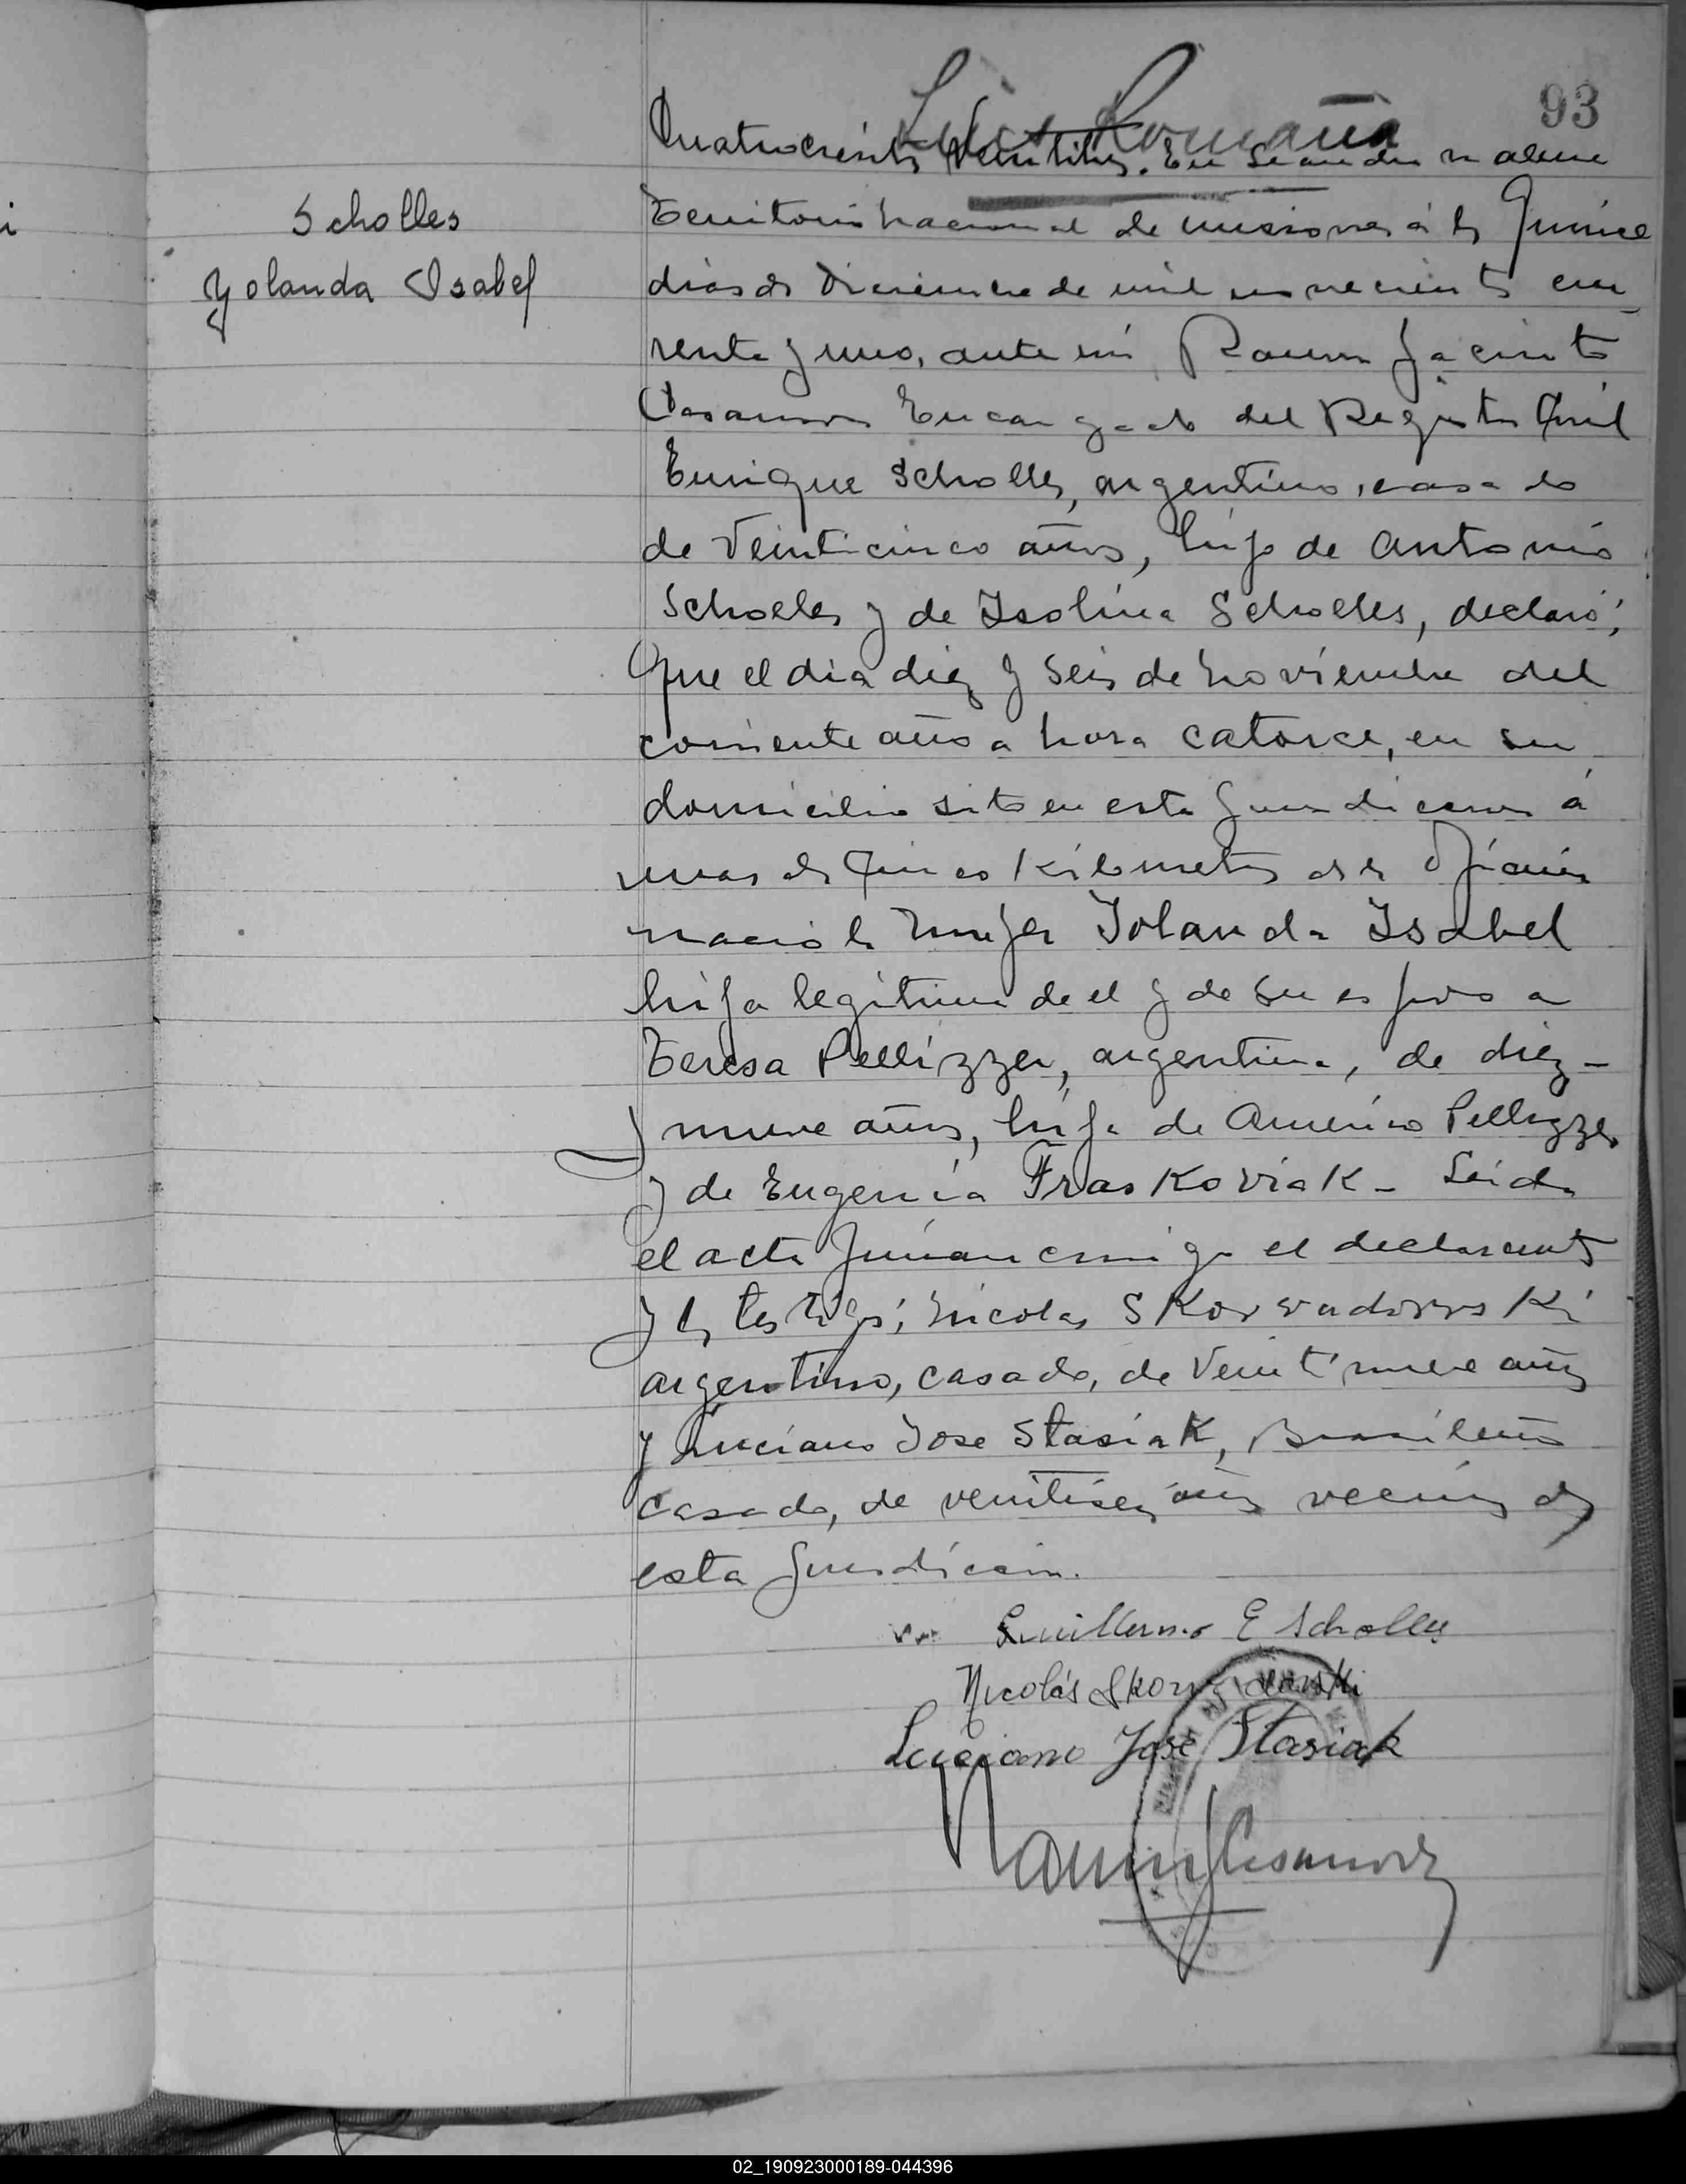 93
Scholles
Yolanda Isabel
Cuatrocientos Veintitres. En Leandro N Alem
Territorio Nacional de Misiones á los Quince
dias de Diciembre de mil novecientos cua-
renta y uno, ante mi, Ramon Jacinto
Casanova Encargado del Registro Civil
Enrique Scholles, argentino, casado
de Veinticinco años, hijo de Antonio
Scholles y de Isolina Scholles, declaró;
Que el dia diez y seis de Noviembre del
corriente año a hora catorce, en su
domicilio sito en esta Jurisdiccion á
unos Cinco Kilometros de la Oficina
nació la mujer Iolanda Isabel
hija legitima de el y de su esposa
Teresa Pellizzer, argentina, de diez-
y nueve años, hija de Américo Pellizzer
y de Eugenia Fraskoviak - Leida
el acta firman conmigo el declarante
y los testigos; Nicolas
argentino, casado, de Veintinueve años
y Luciano Jose Stasiak, Brasileño
casado, de veintiseis años vecinos de
esta Jurisdiccion.
Guillermo E Scholles
Nicolás
Luciano José Stasiak
Ramon J Casanova
02_190923000189-044396